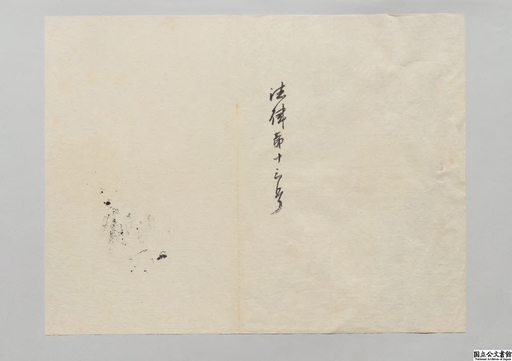 法律第十三号
国立公文書館
National Archives of Japan